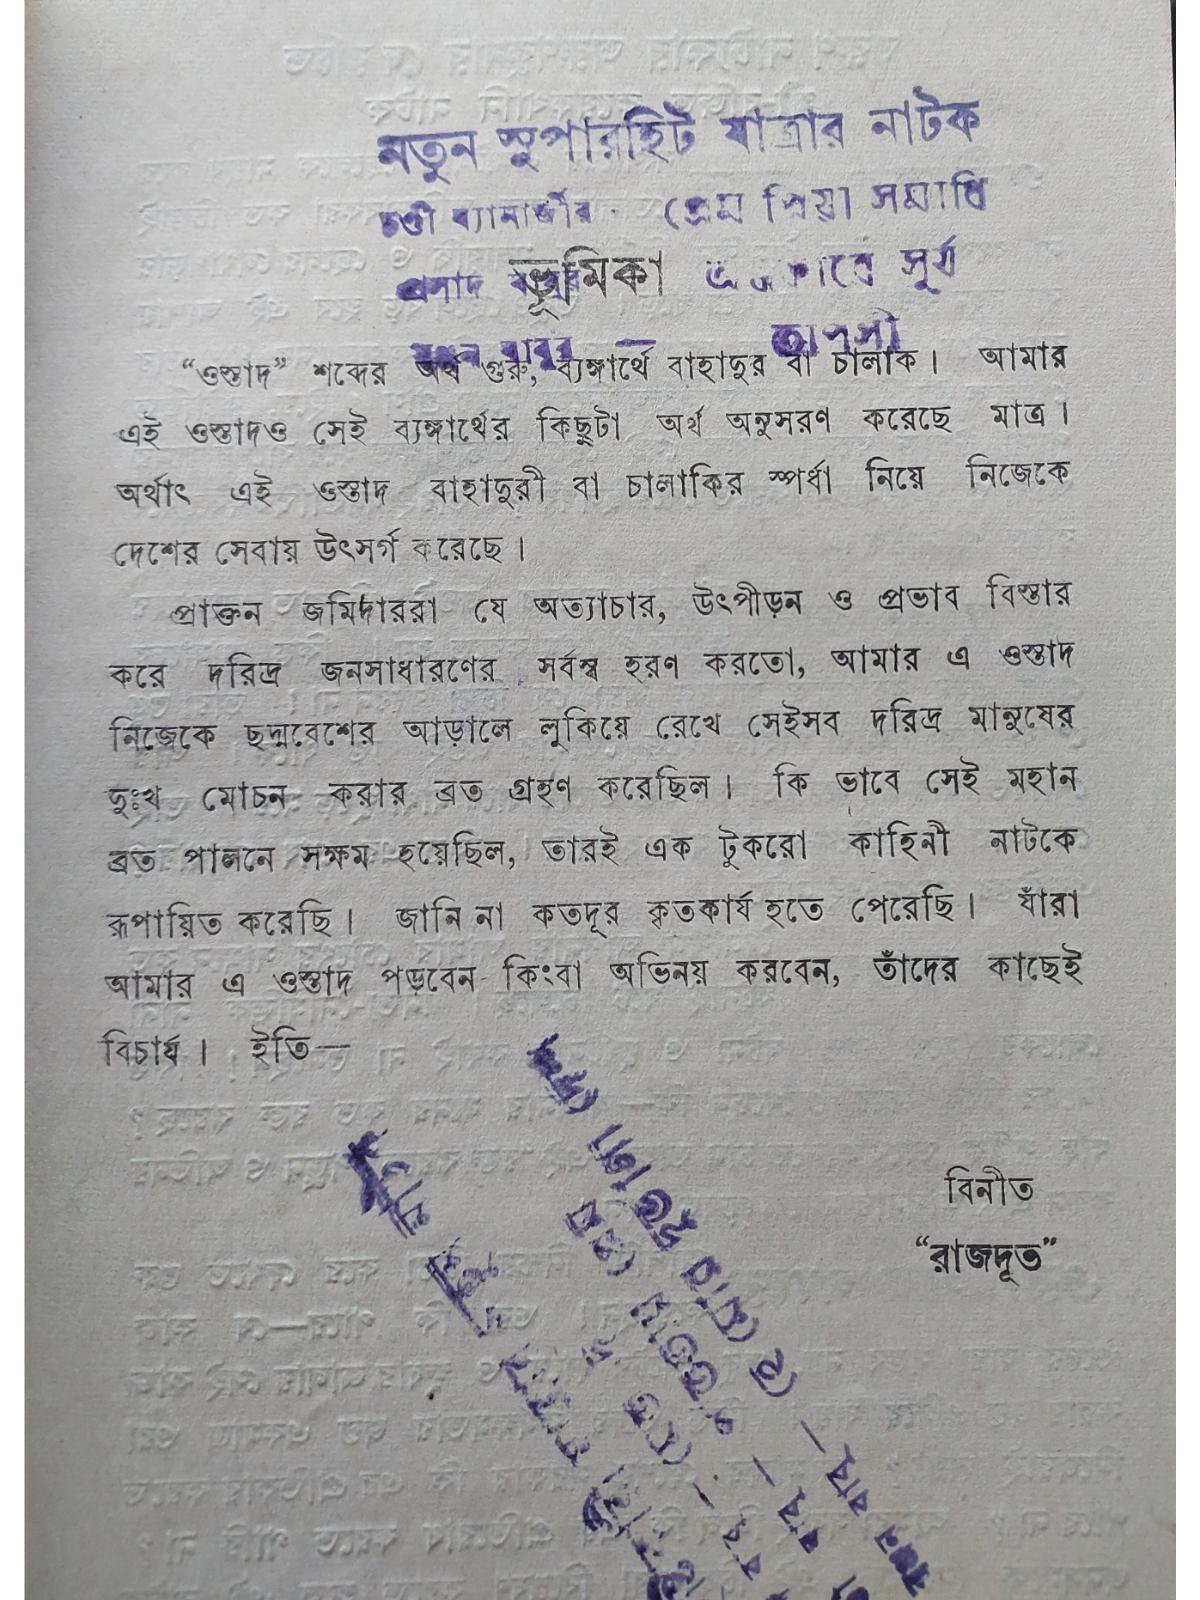 নতুন সুপারহিট যাত্রার নাটক
চণ্ডী ব্যানার্জীর প্রেম প্রিয়া সমাধি
প্রসাদ সূর্য
ভূমিকা
তাপসী
“ওস্তাদ” শব্দের অর্থ গুরু, ব্যঙ্গার্থে বাহাদুর বা চালাক। আমার
এই ওস্তাদও সেই ব্যঙ্গার্থের কিছুটা অর্থ অনুসরণ করেছে মাত্র।
অর্থাৎ এই ওস্তাদ বাহাদুরী বা চালাকির স্পর্ধা নিয়ে নিজেকে
দেশের সেবায় উৎসর্গ করেছে।
প্রাক্তন জমিদাররা যে অত্যাচার, উৎপীড়ন ও প্রভাব বিস্তার
করে দরিদ্র জনসাধারণের সর্বস্ব হরণ করতো, আমার এ ওস্তাদ
নিজেকে ছদ্মবেশের আড়ালে লুকিয়ে রেখে সেইসব দরিদ্র মানুষের
দুঃখ মোচন করার ব্রত গ্রহণ করেছিল। কি ভাবে সেই মহান
ব্রত পালনে সক্ষম হয়েছিল, তারই এক টুকরো কাহিনী নাটকে
রূপায়িত করেছি। জানি না কতদূর কৃতকার্য হতে পেরেছি। যাঁরা
আমার এ ওস্তাদ পড়বেন কিংবা অভিনয় করবেন, তাঁদের কাছেই
বিচার্য। ইতি—
বিনীত
“রাজদূত”